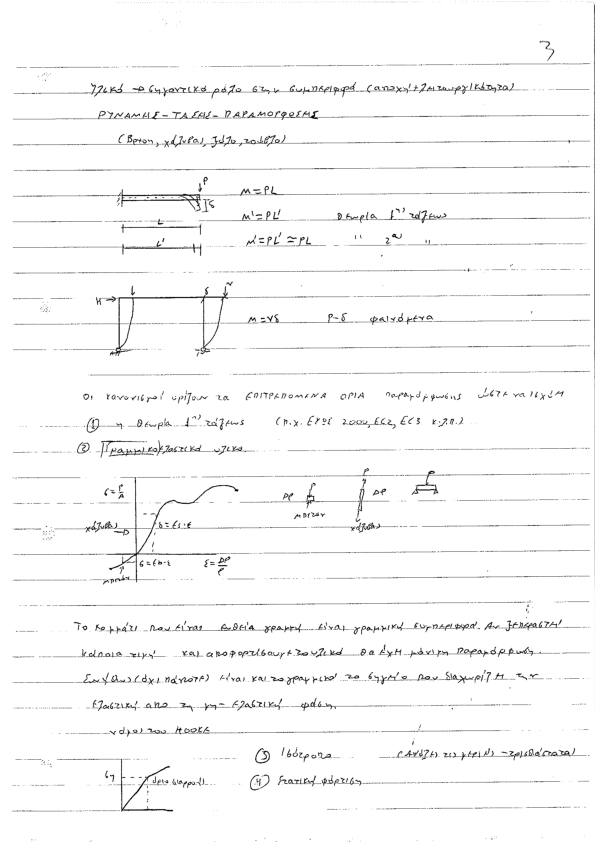 3
Υλικό → σημαντικό ρόλο στην συμπεριφορά (αποχή + λειτουργικότητα)
ΔΥΝΑΜΗΣ - ΤΑΣΗΣ - ΠΑΡΑΜΟΡΦΩΣΗΣ
(Βετον, χάλυβα, ξύλο, τούβλο)
P
δ
M = PL
L
M' = PL' Θεωρία 1ης τάξεως
L'
M' = PL' ≃ PL " 2α "
H δ
M = Vδ P-δ φαινόμενα
Οι κανονισμοί ορίζουν τα ΕΠΙΤΡΕΠΟΜΕΝΑ ΟΡΙΑ παραμόρφωσης ώστε να ισχύει
① η θεωρία 1ης τάξεως (π.χ. ΕΚΩΣ 2000, EC2, EC3 κ.λ.π.)
② Γραμμικό ελαστικό υλικό.
σ = P/A
P P P
ΔΡ ΔΡ
μπετόν
χάλυβας
χάλυβας
σ = Es·ε
σ = Eb·ε
ε = ΔΡ/Ρ
μπετόν
Το κομμάτι που είναι ευθεία γραμμή είναι γραμμική συμπεριφορά. Αν ξεπεραστεί
κάποια τιμή και αποφορτίσουμε το υλικό θα έχει μόνιμη παραμόρφωση
Συνήθως (όχι πάντοτε) είναι και το γραμμικό το σημείο που διαχωρίζει την
ελαστική από τη μη-ελαστική φάση.
νόμος του HOOKE
③ Ισότροπο
σy
όριο διαρροής
④ Στατική φόρτιση